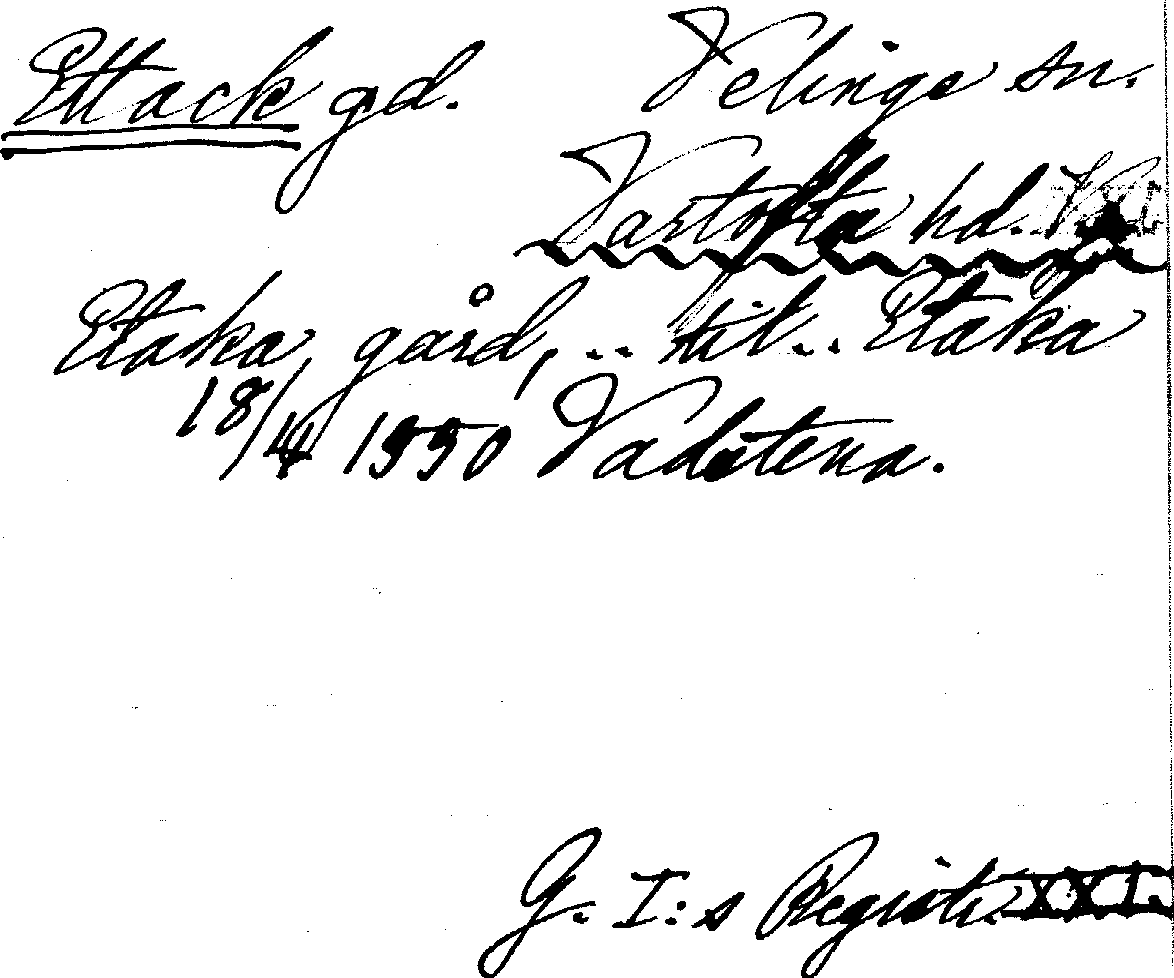 Ettack gd. Velinge sn.
Vartofta hd.
Etaka, gård, .. till .. Etaka
18/4 1550 Vadstena.
G. I:s Registr. XXI.